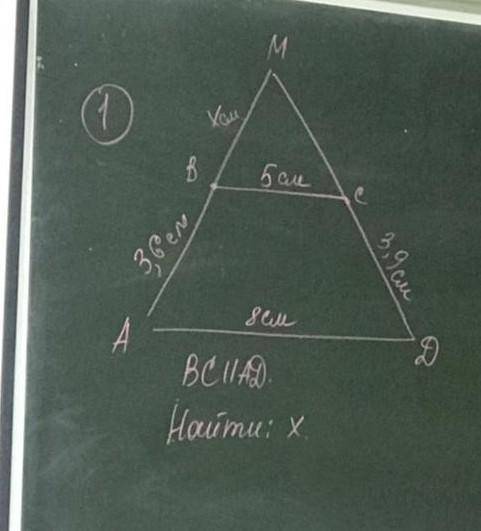 1
M
x см
B
5 см
C
3,6 см
3,9 см
A
8 см
D
BC || AD.
Найти: x.